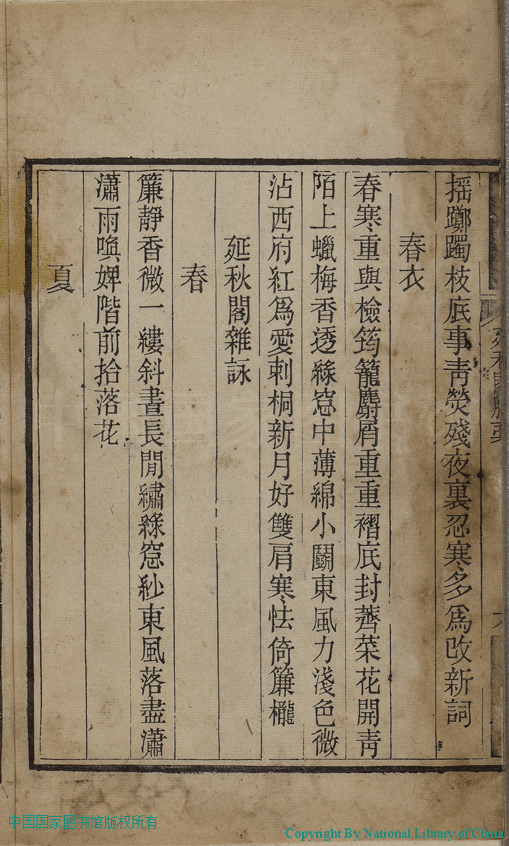 搖躑躅枝底事青熒殘夜裏忍寒多爲改新詞
春衣
春寒重與檢筠籠麝屑重重褶底封薺菜花開靑
陌上蠟梅香透綠窓中薄綿小鬭東風力淺色微
沾西府紅爲愛刺桐新月好雙肩寒怯倚簾櫳
延秋閣雜詠
春
簾靜香微一縷斜晝長閒繡綠窓紗東風落盡瀟
瀟雨喚婢階前拾落花
夏
中国国家图书馆版权所有
Copyright By National Library of China